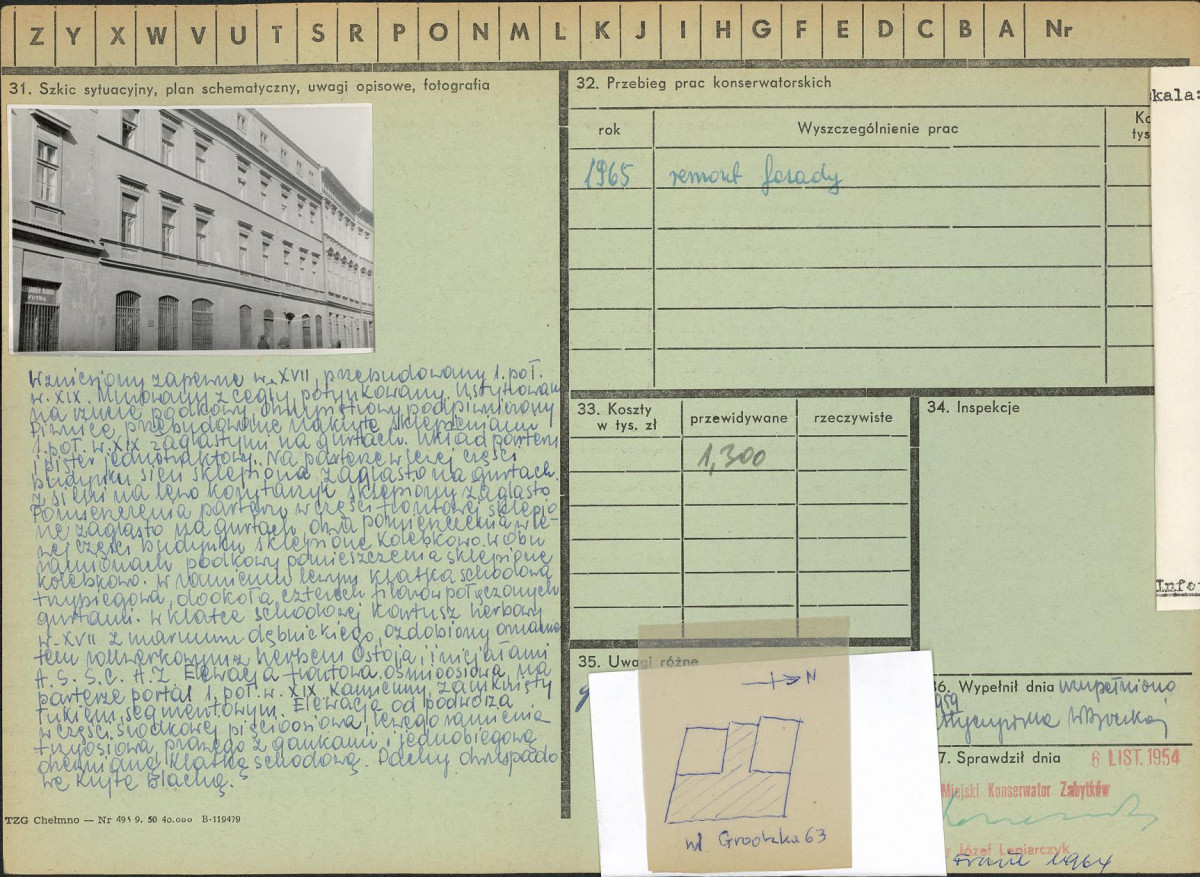 Z Y X W V U T S R P O N M L K J I H G F E D C B A Nr
31. Szkic sytuacyjny, plan schematyczny, uwagi opisowe, fotografia
FUTRA
Wzniesiony zapewne w. XVII, przebudowany 1. poł.
w. XIX. Murowany z cegły, potynkowany. Usytuowany
na rzucie podkowy, dwupiętrowy podpiwniczony
Piwnice przebudowane nakryte sklepieniami
1. poł. w. XIX żaglastymi na gurtach. Układ parteru
i pięter jednotraktowy. Na parterze w lewej części
budynku sień sklepiona żaglasto na gurtach.
Z sieni na lewo korytarzyk sklepiony żaglasto
Pomieszczenia parteru w części frontowej sklepio-
ne żaglasto na gurtach, dwa pomieszczenia w le-
wej części budynku sklepione kolebkowo. W obu
ramionach podkowy pomieszczenia sklepione
kolebkowo. W ramieniu lewym klatka schodowa
trzybiegowa, dookoła czterech filarów połączonych
gurtami. W klatce schodowej kartusz herbowy
w. XVII z marmuru dębnickiego, ozdobiony orname
tem rollwerkowym z herbem Ostoja i inicjałami
A. S. S. C. A. Z Elewacja frontowa ośmioosiowa, na
parterze portal 1. poł. w. XIX kamienny, zamknięty
łukiem segmentowym. Elewacja od podwórza
w części środkowej pięcioosiowa, lewego ramienia
trzyosiowa, prawego z gankami i jednobiegową
drewnianą klatką schodową. Dachy dwuspado
we kryte blachą.
TZG Chełmno — Nr 495 9. 50 40.000 B-119479
32. Przebieg prac konserwatorskich
rok Wyszczególnienie prac Ko
tys
1965 remont fasady
kala:
33. Koszty
w tys. zł
przewidywane rzeczywiste
1,300
34. Inspekcje
Info
35. Uwagi różne
N
ul. Grodzka 63
36. Wypełnił dnia uzupełniono
959
7. Sprawdził dnia 6 LIST. 1954
Miejski Konserwator Zabytków
Józef Lepiarczyk
1964